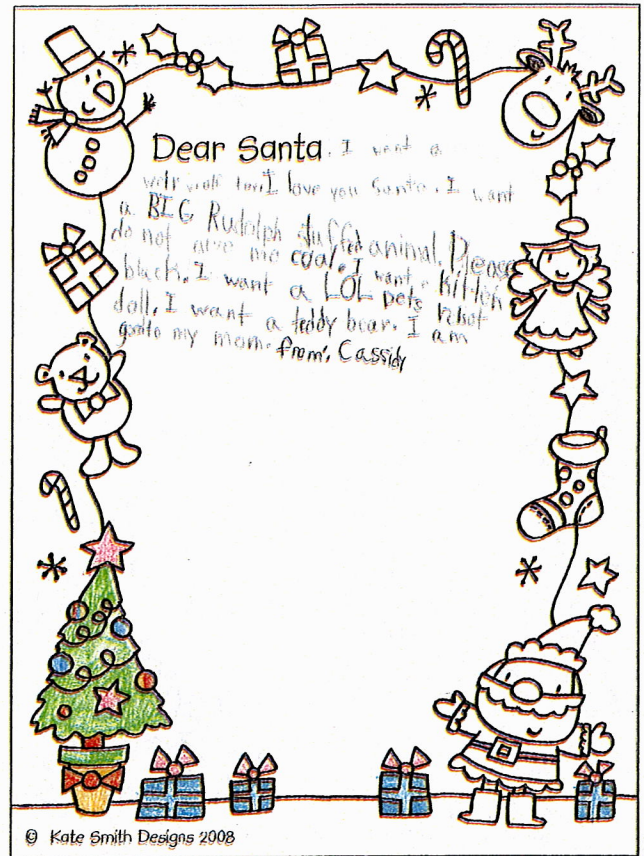 Dear Santa. I want a
I love you Santa. I want
a BIG Rudolph stuffed animal. Please
do not give me coal. I want a kitten
black. I want a LOL pets
doll. I want a teddy bear. I am
to my mom. from, Cassidy
© Kate Smith Designs 2008